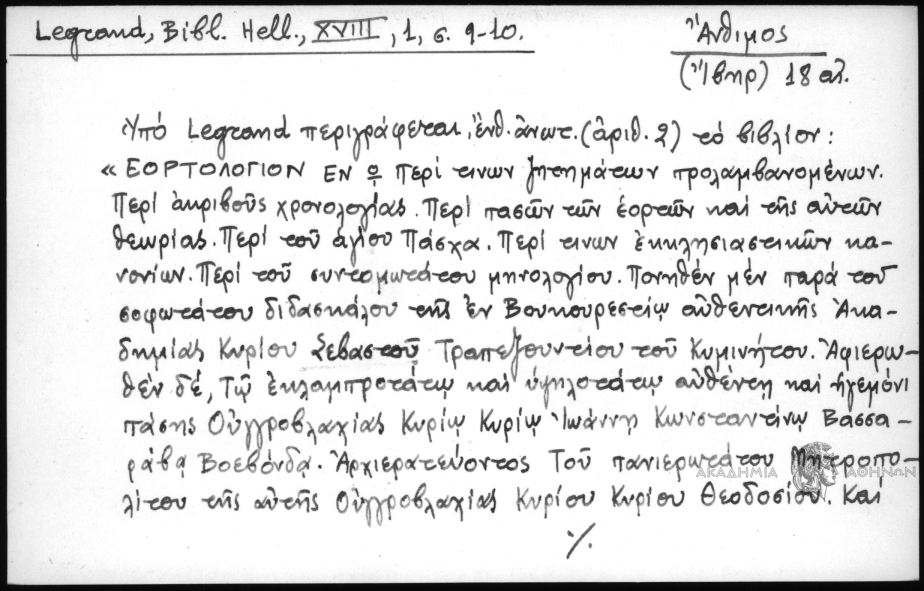 Legrand, Bibl. Hell., XVIII, 1, σ. 9-10.
Ἄνθιμος
(Ἴβηρ) 18 αἰ.
Ὑπό Legrand περιγράφεται, ἔνθ. ἀνωτ. (ἀριθ. 2) τό βιβλίον:
« ΕΟΡΤΟΛΟΓΙΟΝ ΕΝ ᾧ Περί τινων ζητημάτων προλαμβανομένων.
Περί ἀκριβοῦς χρονολογίας. Περί πασῶν τῶν ἑορτῶν καί τῆς αὐτῶν
θεωρίας. Περί τοῦ ἁγίου Πάσχα. Περί τινων ἐκκλησιαστικῶν κα-
νονίων. Περί τοῦ συντομωτάτου μηνολογίου. Πονηθέν μέν παρά τοῦ
σοφωτάτου διδασκάλου τῆς ἐν Βουκουρεστίῳ αὐθεντικῆς Ἀκα-
δημίας Κυρίου Σεβαστοῦ Τραπεζουντίου τοῦ Κυμινήτου. Ἀφιερω-
θέν δέ, Τῷ ἐκλαμπροτάτῳ καί ὑψηλοτάτῳ αὐθέντῃ καί ἡγεμόνι
πάσης Οὑγγροβλαχίας Κυρίῳ Κυρίῳ Ἰωάννῃ Κωνσταντίνῳ Βασσα-
ράβᾳ Βοεβόνδᾳ. Ἀρχιερατεύοντος Τοῦ πανιερωτάτου Μητροπο-
λίτου τῆς αὐτῆς Οὑγγροβλαχίας Κυρίου Κυρίου Θεοδοσίου. Καί
ΑΚΑΔΗΜΙΑ ΑΘΗΝΩΝ
·/.